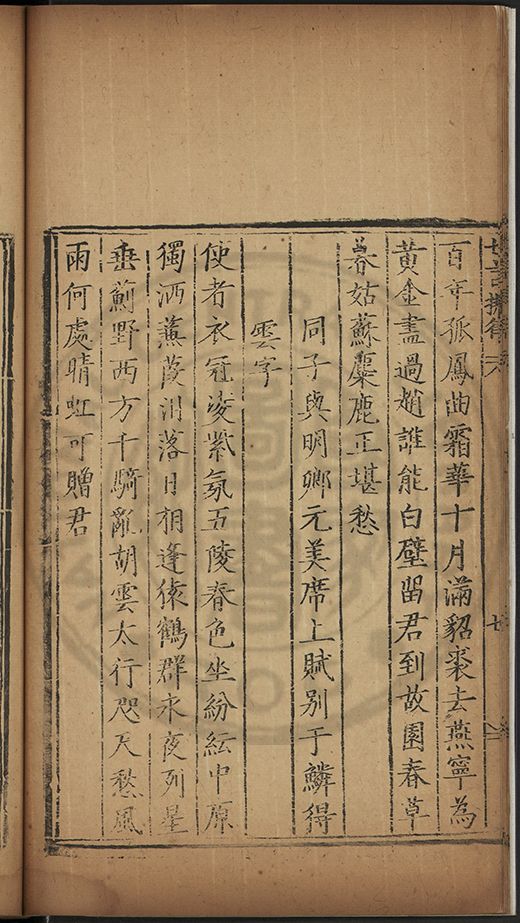 百年孤鳳曲霜華十月滿貂裘去燕寧為
黃金盡過趙誰能白璧留君到故園春草
暮姑蘇麋鹿正堪愁
同子與明卿元美席上賦別于鱗得
雲字
使者衣冠凌紫氛五陵春色坐紛紜中原
獨洒蒹葭淚落日相逢猿鶴群永夜列星
垂薊野西方千騎亂胡雲太行咫尺愁風
雨何處晴虹可贈君